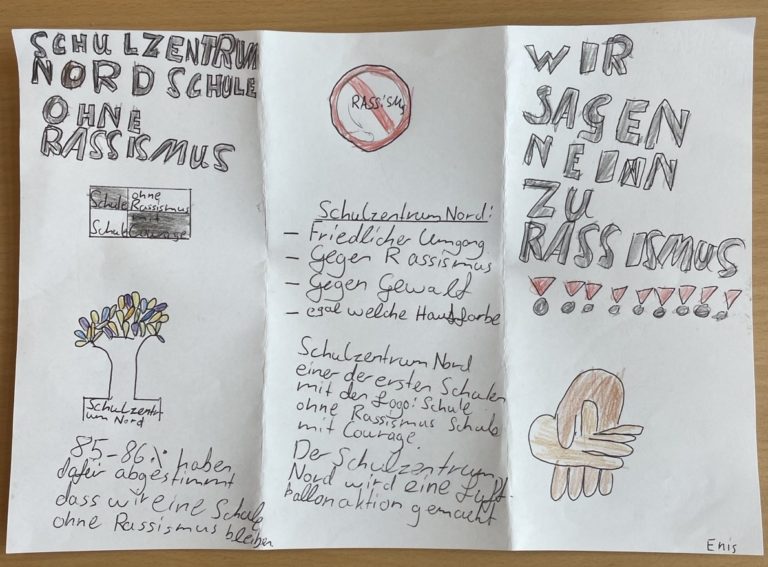 SCHULZENTRUM
NORD SCHULE
OHNE
RASSISMUS
Schule ohne Rassismus
Schule mit Courage
Schulzentr
um Nord
85-86% haben
dafür abgestimmt
dass wir eine Schule
ohne Rassismus bleiben
RASSISMUS
Schulzentrum Nord:
- Friedlicher Umgang
- Gegen Rassismus
- Gegen Gewalt
- egal welche Hautfarbe
Schulzentrum Nord
einer der ersten Schulen
mit den Logo: Schule
ohne Rassismus Schule
mit Courage.
Der Schulzentrum
Nord wird eine Luft-
ballonaktion gemacht
WIR
SAGEN
NEIN
ZU
RASSISMUS
!!!!!!!!
Enis